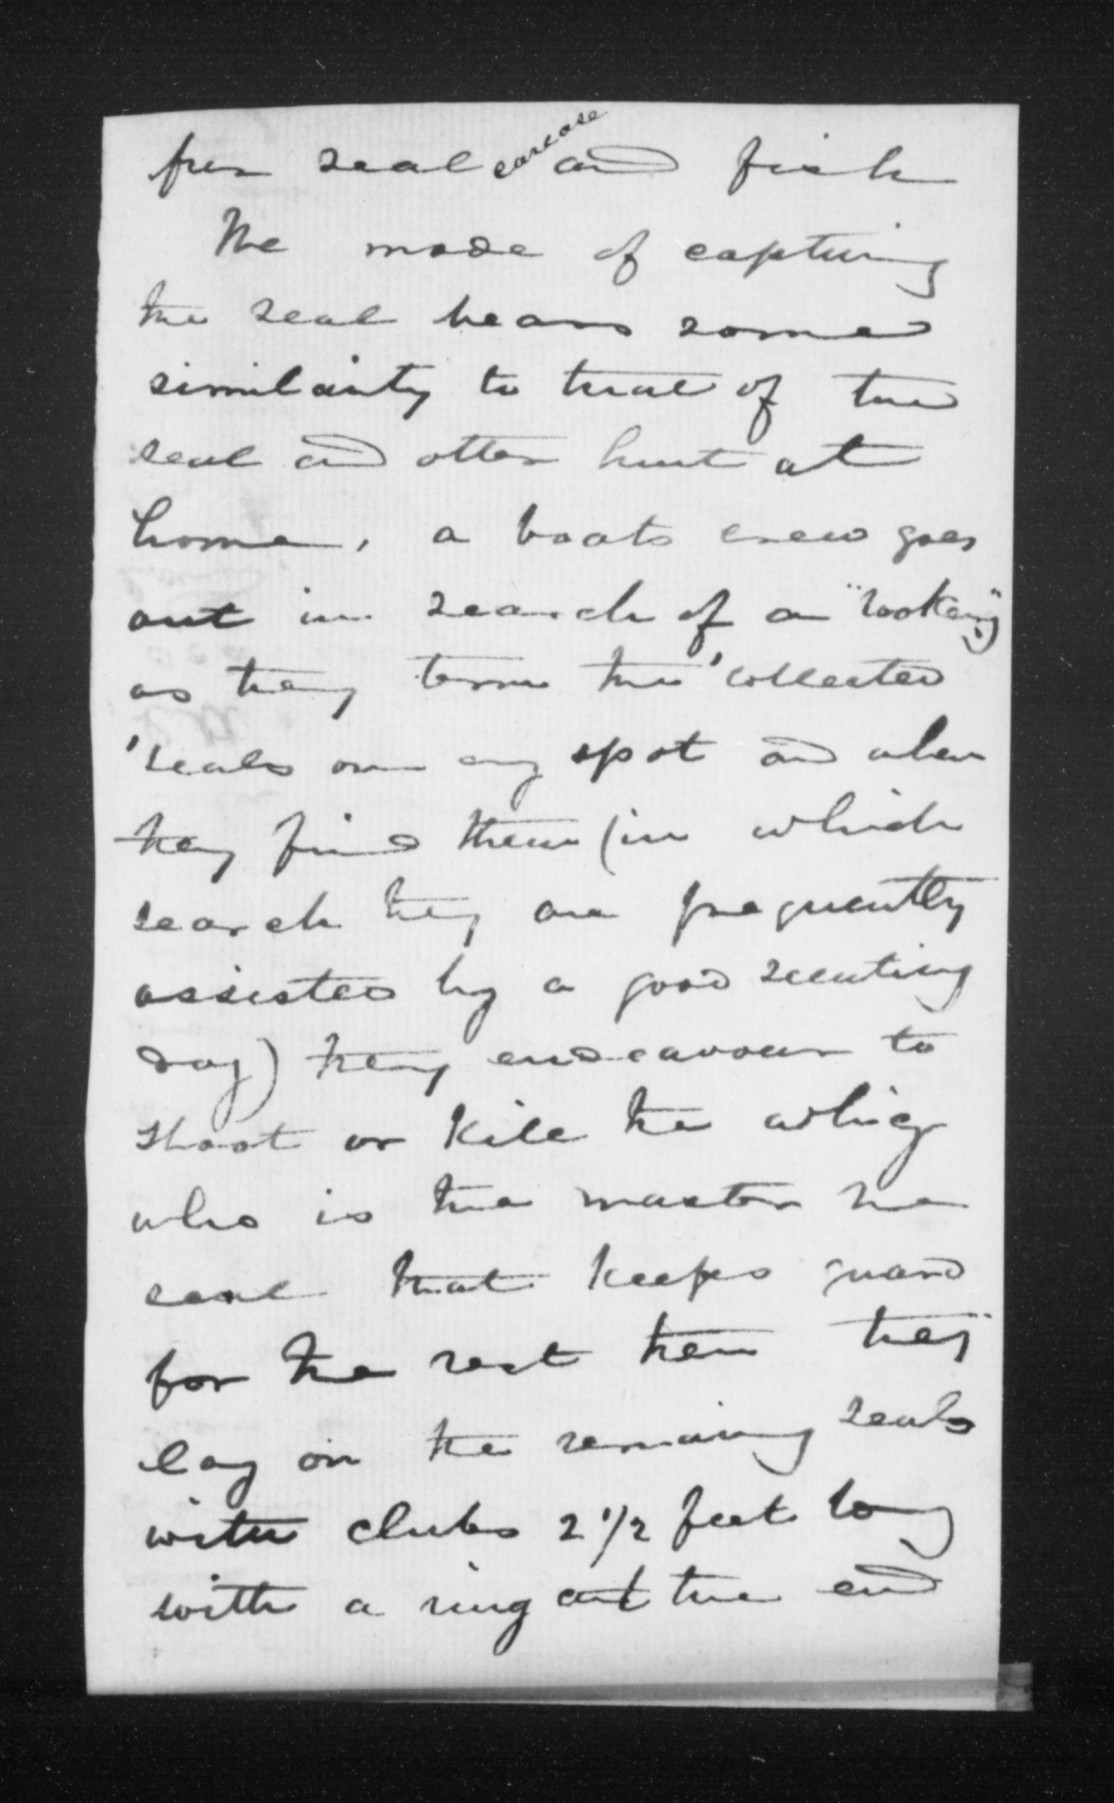 from seal carcase and fish
The mode of capturing
the seal bears some
similarity to that of the
seal and otter hunt at
home, a boats crew goes
out in search of a "rookery"
as they term the 'collected
'seals on any spot and when
they find them (in which
search they are frequently
assisted by a good scenting
dog) they endeavour to
shoot or kill the whig
who is the master he
seal that keeps guard
for the rest then they
lay on the remaining seals
with clubs 2 1/2 feet long
with a ring at the end